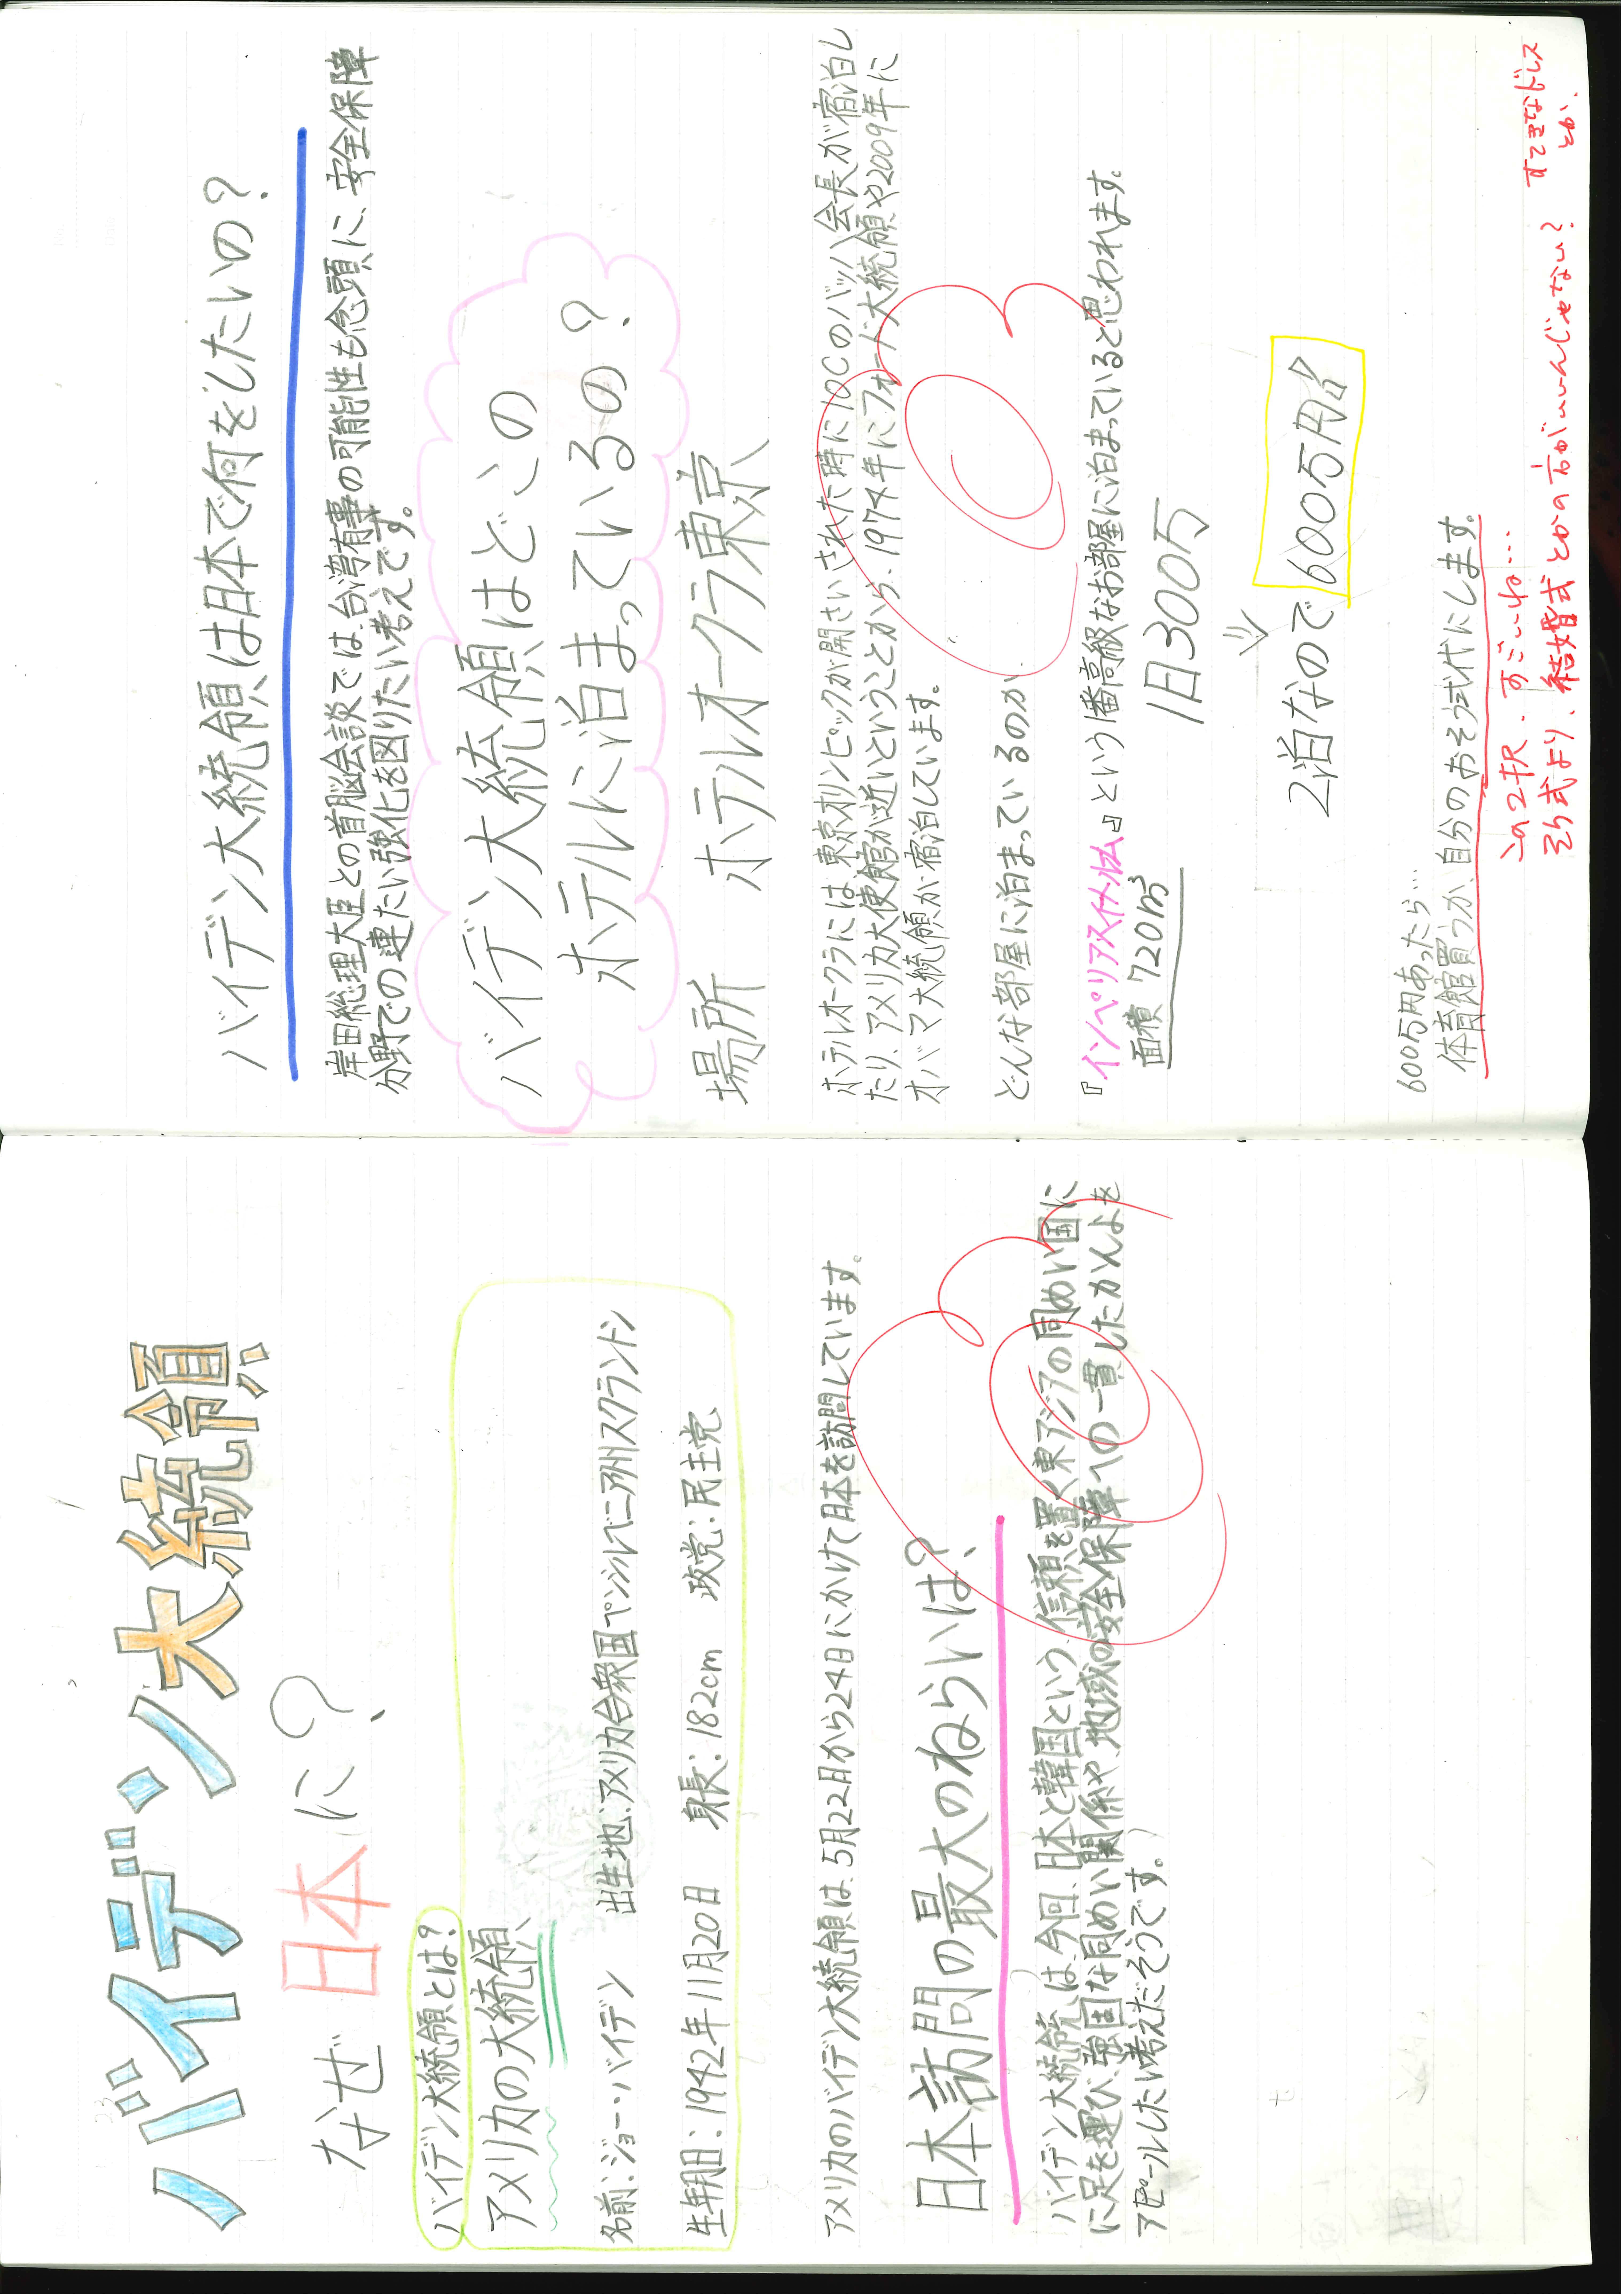 バイデン大統領
なぜ日本に?
バイデン大統領とは?
アメリカの大統領
名前:ジョー・バイデン 出生地:アメリカ合衆国ペンシルベニア州スクラントン
生年月日:1942年11月20日 身長:182cm 政党:民主党
アメリカのバイデン大統領は、5月22日から24日にかけて日本を訪問しています。
日本訪問の最大のねらいは?
バイデン大統領は、今回、日本と韓国という、信頼を置く東アジアの同めい国に
に足を運び、強固な同めい関係や、地域の安全保障への一貫したかんよを
アピールしたい考えだそうです。
バイデン大統領は日本で何をしたいの?
岸田総理大臣との首脳会談では、台湾有事の可能性も念頭に、安全保障
分野での連たい強化を図りたい考えです。
バイデン大統領はどこの
ホテルに泊まっているの?
場所 ホテルオークラ東京
ホテルオークラには、東京オリンピックが開さいされた時にIOCのバッハ会長が宿泊し
たり、アメリカ大使館が近いということから、1974年にフォード大統領や2009年に
オバマ大統領が宿泊しています。
どんな部屋に泊まっているのか
『インペリアルスイートルーム』という1番高級なお部屋に泊まっていると思われます。
面積 720㎡
1日300万
2泊なので600万円!!
600万円あったら…
体育館買うか、自分のおそう式代にします。
この2択、すごいね…
そう式より、結婚式とかの方がいいんじゃない?
すてきなドレス
とか、